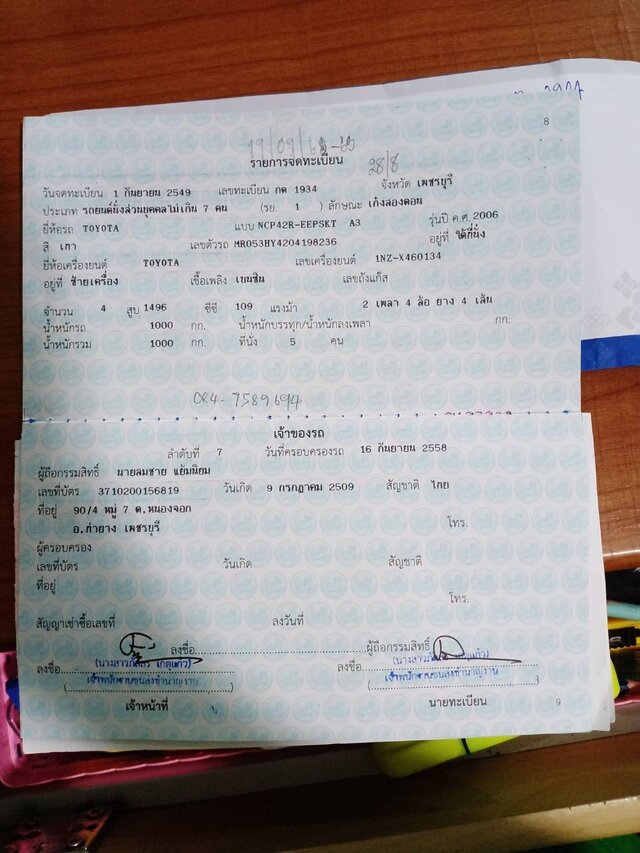 8
19/09/
รายการจดทะเบียน
28/8
วันจดทะเบียน 1 กันยายน 2549 เลขทะเบียน กต 1934 จังหวัด เพชรบุรี
ประเภท รถยนต์นั่งส่วนบุคคลไม่เกิน 7 คน (รย. 1 ) ลักษณะ เก๋งสองตอน
ยี่ห้อรถ TOYOTA แบบ NCP42R-EEPSKT A3 รุ่นปี ค.ศ. 2006
สี เทา เลขตัวรถ MR053HY4204198236 อยู่ที่ ใต้ที่นั่ง
ยี่ห้อเครื่องยนต์ TOYOTA เลขเครื่องยนต์ 1NZ-X460134
อยู่ที่ ซ้ายเครื่อง เชื้อเพลิง เบนซิน เลขถังแก๊ส
จำนวน 4 สูบ 1496 ซีซี 109 แรงม้า 2 เพลา 4 ล้อ ยาง 4 เส้น
น้ำหนักรถ 1000 กก. น้ำหนักบรรทุก/น้ำหนักลงเพลา กก.
น้ำหนักรวม 1000 กก. ที่นั่ง 5 คน
084-7589694
เจ้าของรถ
ลำดับที่ 7 วันที่ครอบครองรถ 16 กันยายน 2558
ผู้ถือกรรมสิทธิ์ นายลมชาย แย้มนิยม
เลขที่บัตร 3710200156819 วันเกิด 9 กรกฎาคม 2509 สัญชาติ ไทย
ที่อยู่ 90/4 หมู่ 7 ต.หนองจอก
อ.ท่ายาง เพชรบุรี โทร.
ผู้ครอบครอง
เลขที่บัตร วันเกิด สัญชาติ
ที่อยู่
โทร.
สัญญาเช่าซื้อเลขที่ ลงวันที่
ลงชื่อ ผู้ถือกรรมสิทธิ์
ลงชื่อ ลงชื่อ
เจ้าพนักงานขนส่งชำนาญงาน เจ้าพนักงานขนส่งชำนาญงาน
เจ้าหน้าที่ นายทะเบียน
9